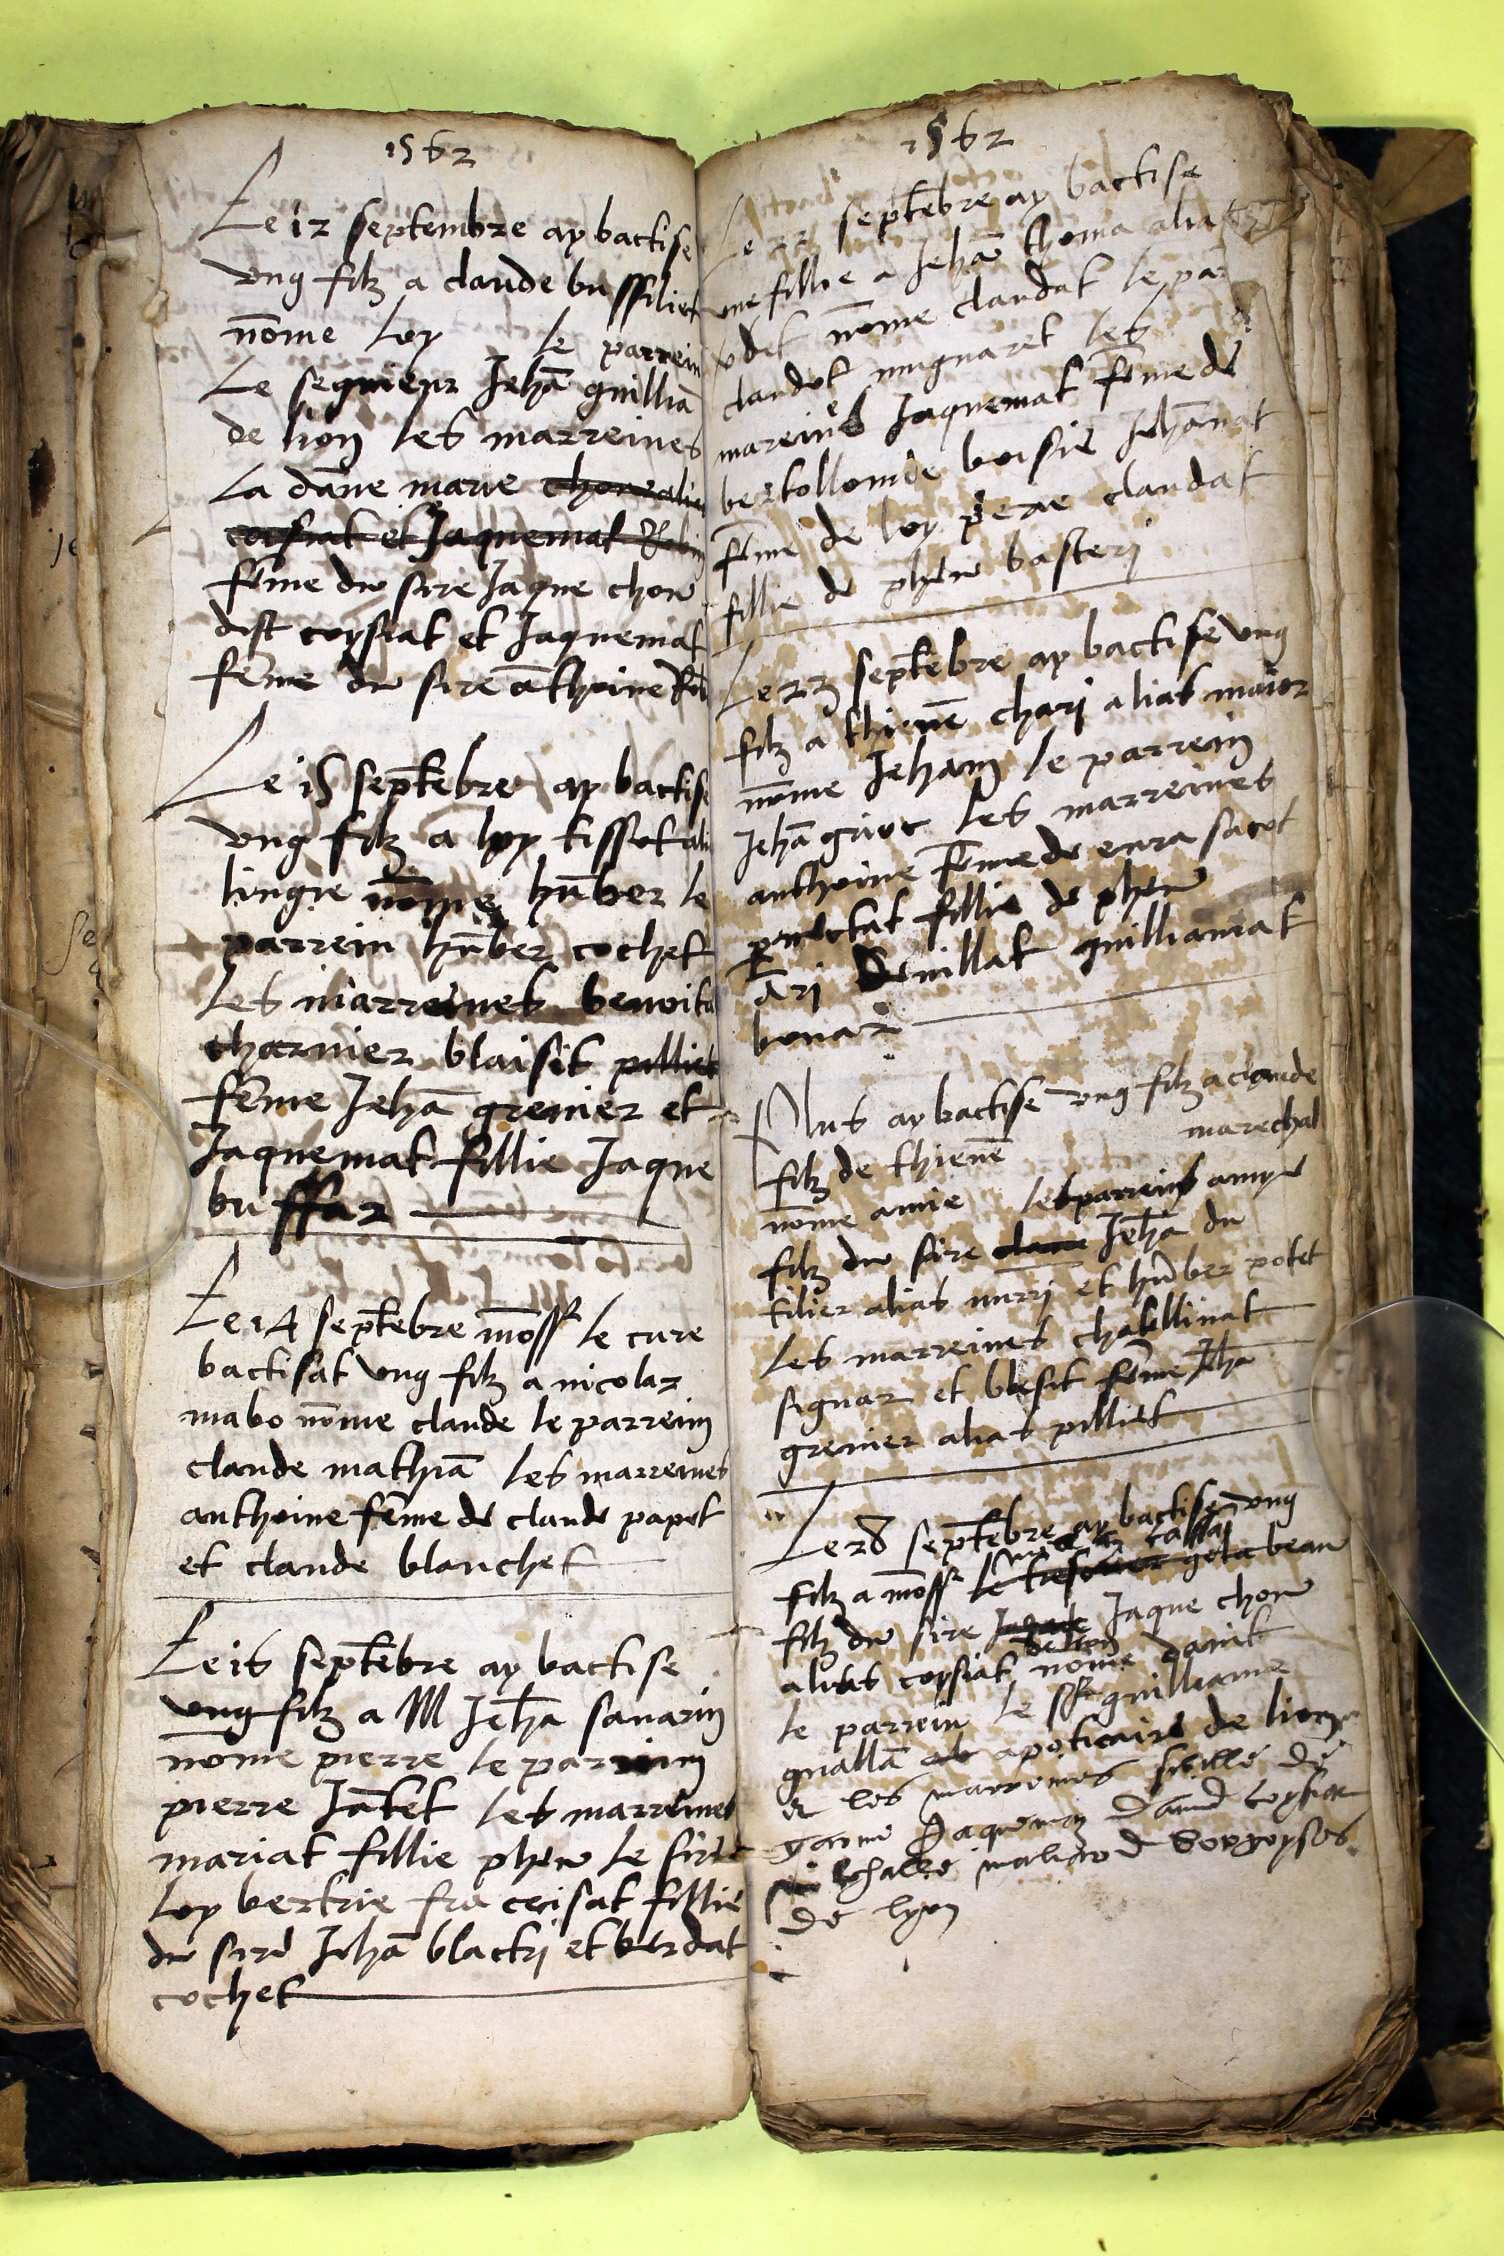 1562
Le 12 septembre ay bactise
ung filz a claude buffiliet
nōme loy le parrein
Le segnieur Jehā guilliā
de lion les marreines
La dāne marie chone alie
coysiat et Jaquemat Robin
fēme du sire Jaque chone
dist coysiat et Jaquemat
fēme du sire āthoine Rob
Le 15 septēbre ay bactise
ung filz a loy tissot ali
lingre nōme hūber le
parrein hūber cochet
les marreines benoita
charnier blaisit pilliet
fēme Jehā grenier et
Jaquemat fillie Jaque
buffar
Le 14 septēbre mōssr le cure
bactisat ung filz a nicolar
mabo nōme claude le parrein
claude mathiā les marreines
anthoine fēme de claude papot
et claude blanchet
Le 16 septēbre ay bactise
ung filz a M Jehā savarin
nōme pierre le parrein
pierre Jātet les marreines
mariat fillie phēu le sire
loy bertrie frācisat fillie
du sire Jehā blactri et berdat
cochet
1562
Le 22 septēbre ay bactise
une fillie a Jehā thoma alia
odet nōme claudat le par
claudot mugnaret les
mareines Jaquemat fēme de
bertollomde boisie Jehānat
fēme de loy perre claudat
fillie de phēu basteri
Le 23 septēbre ay bactise ung
filz a thienē chari alias maior
nōme Jehan le parrein
Jehā grioc les marreines
anthoine fēme de enra sacot
pernectat fillie de phēu
āri Devillat guilliamat
bonar
Plus ay bactise ung filz a claude
marechal
filz de thienē
nōme amie les parreins amye
filz du sire claue Jehā du
tilier alias murri et hūber potet
les marreines chatellinat
signar et blesit fēme Jehā
grenier alias pilliet
Le 28 septēbre ay bactise ung
filz a mōssr le tresorier gela beau
filz du sire Jaque Jaque chone
alias coysiat nōme davit
de lion
le parrein le sr guilliaume
guallā apoticaire de lion
et les marrennes sibille de
Jaquemin david coysiat
de lyon